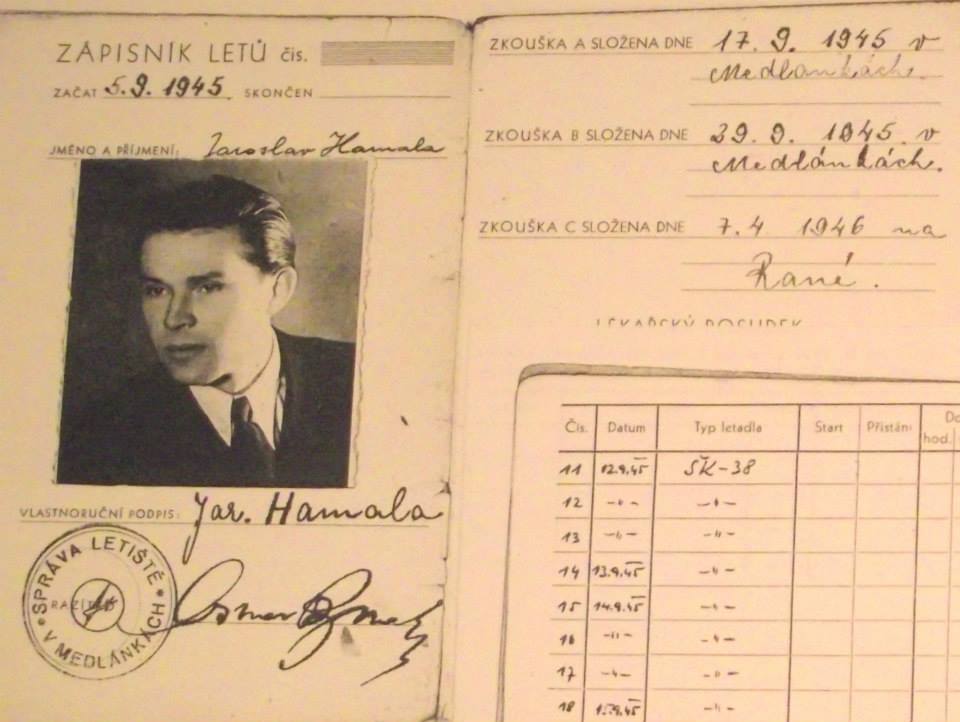 ZÁPISNÍK LETŮ čís.
ZAČAT 5.9. 1945 SKONČEN
JMÉNO A PŘÍJMENÍ: Jaroslav Hamala
VLASTNORUČNÍ PODPIS: Jar. Hamala
SPRÁVA LETIŠTĚ
RAZÍTKO
V MEDLÁNKÁCH
ZKOUŠKA A SLOŽENA DNE 17. 9. 1945 v
Medlánkách.
ZKOUŠKA B SLOŽENA DNE 29. 9. 1945 v
Medlánkách.
ZKOUŠKA C SLOŽENA DNE 7. 4 1946 na
Rané.
LÉKAŘSKÝ POSUDEK
Čís. Datum Typ letadla Start Přistání Do
hod.
11 12.9.45 ŠK-38
12 -"- -"-
13 -"- -"-
14 13.9.45 -"-
15 14.9.45 -"-
16 -"- -"-
17 -"- -"-
18 15.9.45 -"-